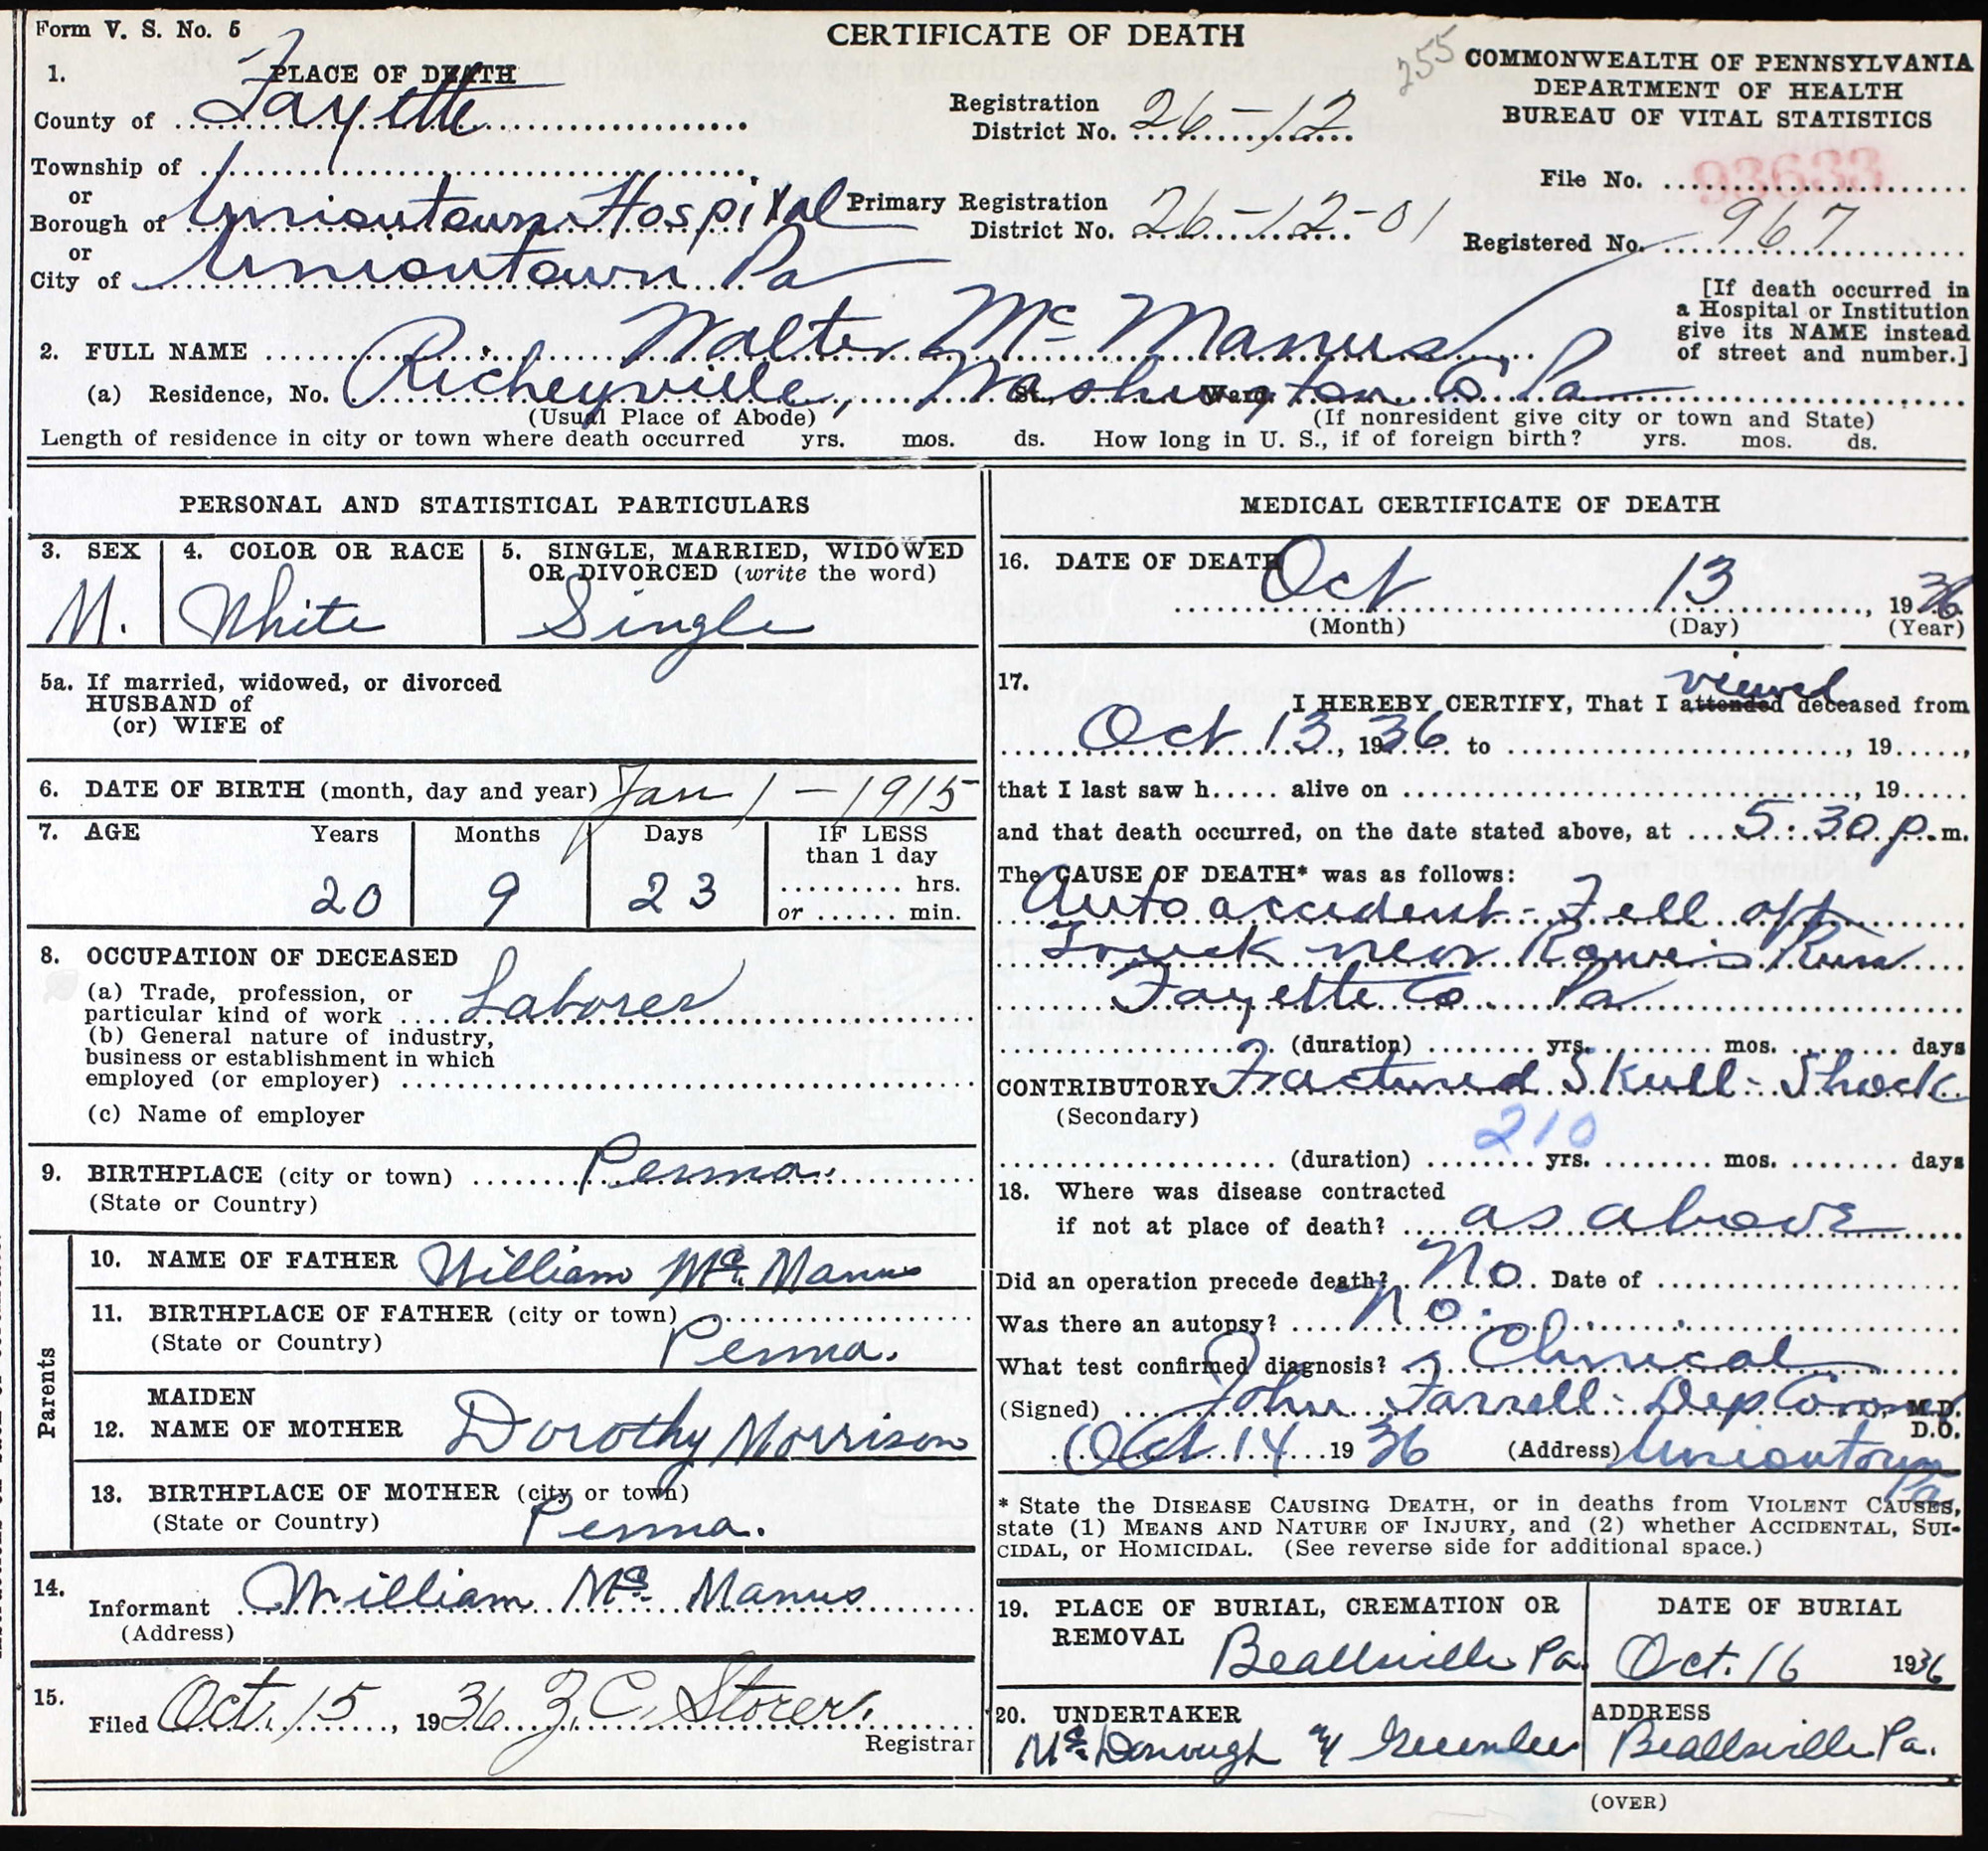 Form V. S. No. 5
CERTIFICATE OF DEATH
255
COMMONWEALTH OF PENNSYLVANIA
DEPARTMENT OF HEALTH
BUREAU OF VITAL STATISTICS
1. PLACE OF DEATH
County of Fayette
Registration District No. 26-12
File No. 93633
Township of
or
Borough of Uniontown Hospital
Primary Registration District No. 26-12-01
Registered No. 967
or
City of Uniontown Pa
[If death occurred in
a Hospital or Institution
give its NAME instead
of street and number.]
2. FULL NAME Walter Mc Manus
(a) Residence, No. Richeyville, St., Washington Co Pa Ward
(Usual Place of Abode) (If nonresident give city or town and State)
Length of residence in city or town where death occurred yrs. mos. ds. How long in U. S., if of foreign birth? yrs. mos. ds.
PERSONAL AND STATISTICAL PARTICULARS
3. SEX 4. COLOR OR RACE 5. SINGLE, MARRIED, WIDOWED
OR DIVORCED (write the word)
M. White Single
5a. If married, widowed, or divorced
HUSBAND of
(or) WIFE of
6. DATE OF BIRTH (month, day and year) Jan 1 - 1915
7. AGE Years Months Days IF LESS
than 1 day
20 9 23 hrs.
or min.
8. OCCUPATION OF DECEASED
(a) Trade, profession, or
particular kind of work Laborer
(b) General nature of industry,
business or establishment in which
employed (or employer)
(c) Name of employer
9. BIRTHPLACE (city or town) Penna.
(State or Country)
Parents
10. NAME OF FATHER William Mc Manus
11. BIRTHPLACE OF FATHER (city or town)
(State or Country) Penna.
MAIDEN
12. NAME OF MOTHER Dorothy Morrison
13. BIRTHPLACE OF MOTHER (city or town)
(State or Country) Penna.
14.
Informant William Mc Manus
(Address)
15.
Filed Oct. 15, 1936 Z. C. Storer.
Registrar
MEDICAL CERTIFICATE OF DEATH
16. DATE OF DEATH Oct 13, 1936
(Month) (Day) (Year)
17. viewed
I HEREBY CERTIFY, That I attended deceased from
Oct 13, 1936 to , 19
that I last saw h alive on , 19
and that death occurred, on the date stated above, at 5:30 p.m.
The CAUSE OF DEATH* was as follows:
Auto accident - Fell off
Truck near Rowe's Run
Fayette Co. Pa
(duration) yrs. mos. days
CONTRIBUTORY Fractured Skull - Shock
(Secondary)
210
(duration) yrs. mos. days
18. Where was disease contracted
if not at place of death? as above
Did an operation precede death? No Date of
Was there an autopsy? No.
What test confirmed diagnosis? Clinical
(Signed) John Farrell - Dep Coroner M.D.
D.O.
Oct 14 1936 (Address) Uniontown
Pa
* State the DISEASE CAUSING DEATH, or in deaths from VIOLENT CAUSES,
state (1) MEANS AND NATURE OF INJURY, and (2) whether ACCIDENTAL, SUI-
CIDAL, or HOMICIDAL. (See reverse side for additional space.)
19. PLACE OF BURIAL, CREMATION OR
REMOVAL Beallsville Pa
DATE OF BURIAL
Oct. 16 1936
20. UNDERTAKER
McDonough & Greenlee
ADDRESS
Beallsville Pa.
(OVER)